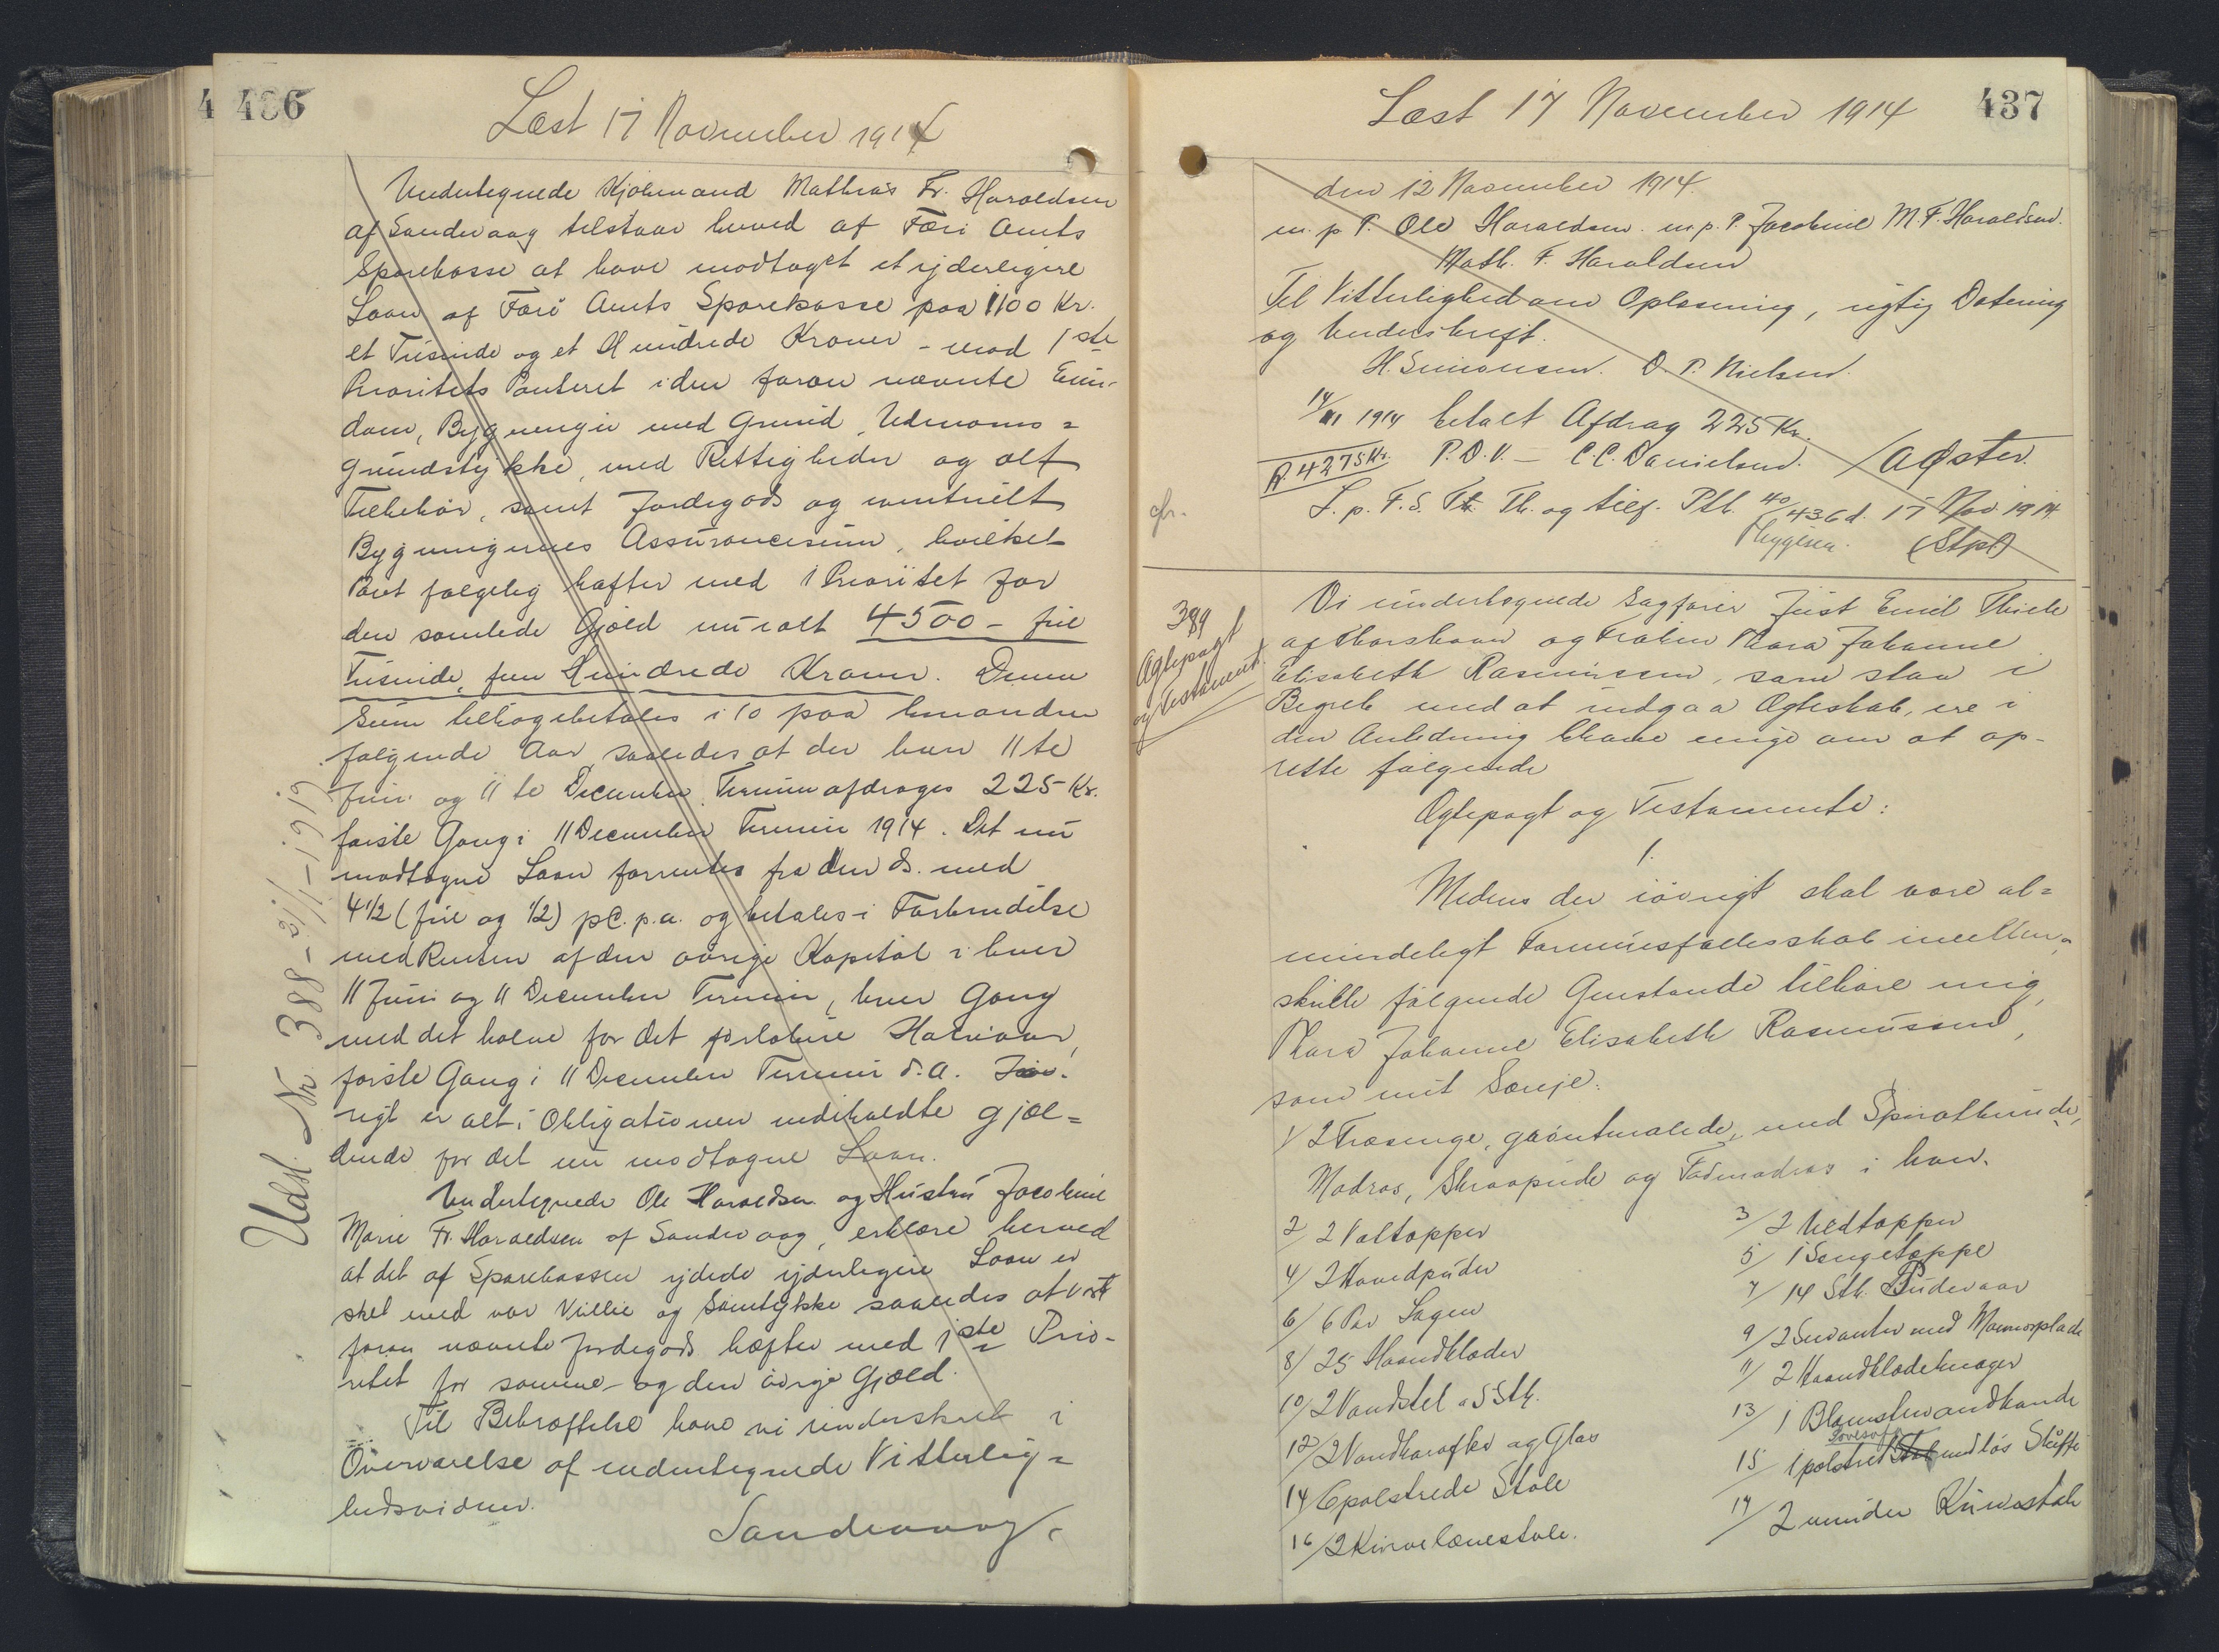 436
Læst 17 November 1914
Undertegnede Kjøbmand Mathias Fr. Haraldsen
af Sandevaag tilstaar herved af Færø Amts
Sparekasse at have modtaget et yderligere
Laan af Færø Amts Sparekasse paa 1100 Kr.
et Tusinde og et Hundrede Kroner - mod 1ste
Prioritets Panteret i den foran nævnte Ejen-
dom, Bygninger med Grund, Udmarks=
grundstykke, med Rettigheder og alt
Tilbehør, samt Jordegods og eventuelt
Bygningernes Assurancesum, hvilket
Pant følgelig hæfter med 1 Prioritet for
den samlede Gjæld nu ialt 4500 - fire
Tusinde, fem Hundrede Kroner. Denne
Sum tilbagebetales i 10 paa hinanden
følgende Aar saaledes at der hver 11te
Juni og 11te December Termin afdrages 225 Kr.
første Gang i 11 December Termin 1914. Det nu
modtagne Laan forrentes fra den d. med
4 1/2 (fire og 1/2) pC. p.a. og betales i Forbindelse
med Renten af den øvrige Kapital i hver
11 Juni og 11 December Termin, hver Gang
med det halve for det forløbne Halvaar,
første Gang i 11 December Termin d.A. Iøv-
rigt er alt i Obligationen indeholdte gjæl=
dende for det nu modtagne Laan.
Undertegnede Ole Haraldsen og Hustru Jacobine
Marie Fr. Haraldsen af Sandevaag, erklære herved
at det af Sparekassen ydede yderligere Laan er
sket med vor Villie og Samtykke saaledes at vort
foran nævnte Jordegods hæfter med 1ste Prio-
ritet for samme - og den øvrige Gjæld.
Til Bekræftelse have vi underskrevet i
Overværelse af undertegnede Vitterlig=
hedsvidner.
Sandevaag,
Udsl. Nr. 388 - 31/1 - 1919
437
Læst 17 November 1914
den 12 November 1914.
m. p. P. Ole Haraldsen. m. p. P. Jacobine M. F. Haraldsen.
Math. F. Haraldsen
Til Vitterlighed om Oplæsning, rigtig Datering
og Underskrift.
H. Simonsen. O. P. Nielsen.
14/XI 1914 betalt Afdrag 225 Kr.
R. 4275 Kr. P.D.V. - C C. Danielsen. / A Øster.
L. p. F. S. Th. og tilf. Ptb. 40/436 d. 17 Nov. 1914
(Stpl)
389
Ægtepagt
og Testament.
Vi undertegnede Sagfører Just Emil Thiele
af Thorshavn og Frøken Thora Johanne
Elisabeth Rasmussen, som staa i
Begreb med at indgaa Ægteskab, ere i
den Anledning blevne enige om at op-
rette følgende
Ægtepagt og Testamente:
1.
Medens der iøvrigt skal være al=
mindeligt Formuesfællesskab imellem os
skulle følgende Genstande tilhøre mig,
Thora Johanne Elisabeth Rasmussen,
som mit Særeje:
1/ 2 Træsenge, grøntmalede, med Spiralbunde,
Madras, Skraapude og Fodmadras i hver.
2/ 2 Vattæpper
3/ 2 Uldtæpper
4/ 2 Hovedpuder
5/ 1 Sengetæppe
6/ 6 Par Lagen
7/ 14 Stk. Pudevaar
8/ 25 Haandklæder
9/ 2 Servanter med Marmorplade
10/ 2 Vandstel a 5 Stk.
11/ 2 Haandklædeknager
12/ 2 Vandkarafler og Glas
13/ 1 Blomstervandkande
14/ 6 polstrede Stole
15/ 1 polstret Sovesofa med løs Skuffe
16/ 2 Kurvelænestole.
17/ 2 mindre Kurvestole